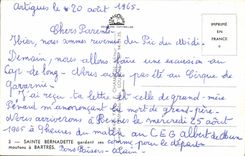 Artigues le 20 août 1965.
Chers Parents
Hier, nous sommes revenus du Pic du Midi.
Demain, nous allons faire une excursion au
Cap de long. Nous aurons pas été au Cirque de
Gavarnie.
J'ai reçu ta lettre et celle de grand-mère
Penaud m'annonçant la mort de grand-père.
Nous arriverons à Rennes le mercredi 25 août
1965 à heures du matin au C.E.G Albert de Mun
comme pour le départ
Bons Baisers - Alain -
IMPRIMÉ
EN
FRANCE
3 — SAINTE BERNADETTE gardant ses
moutons à BARTRÈS.